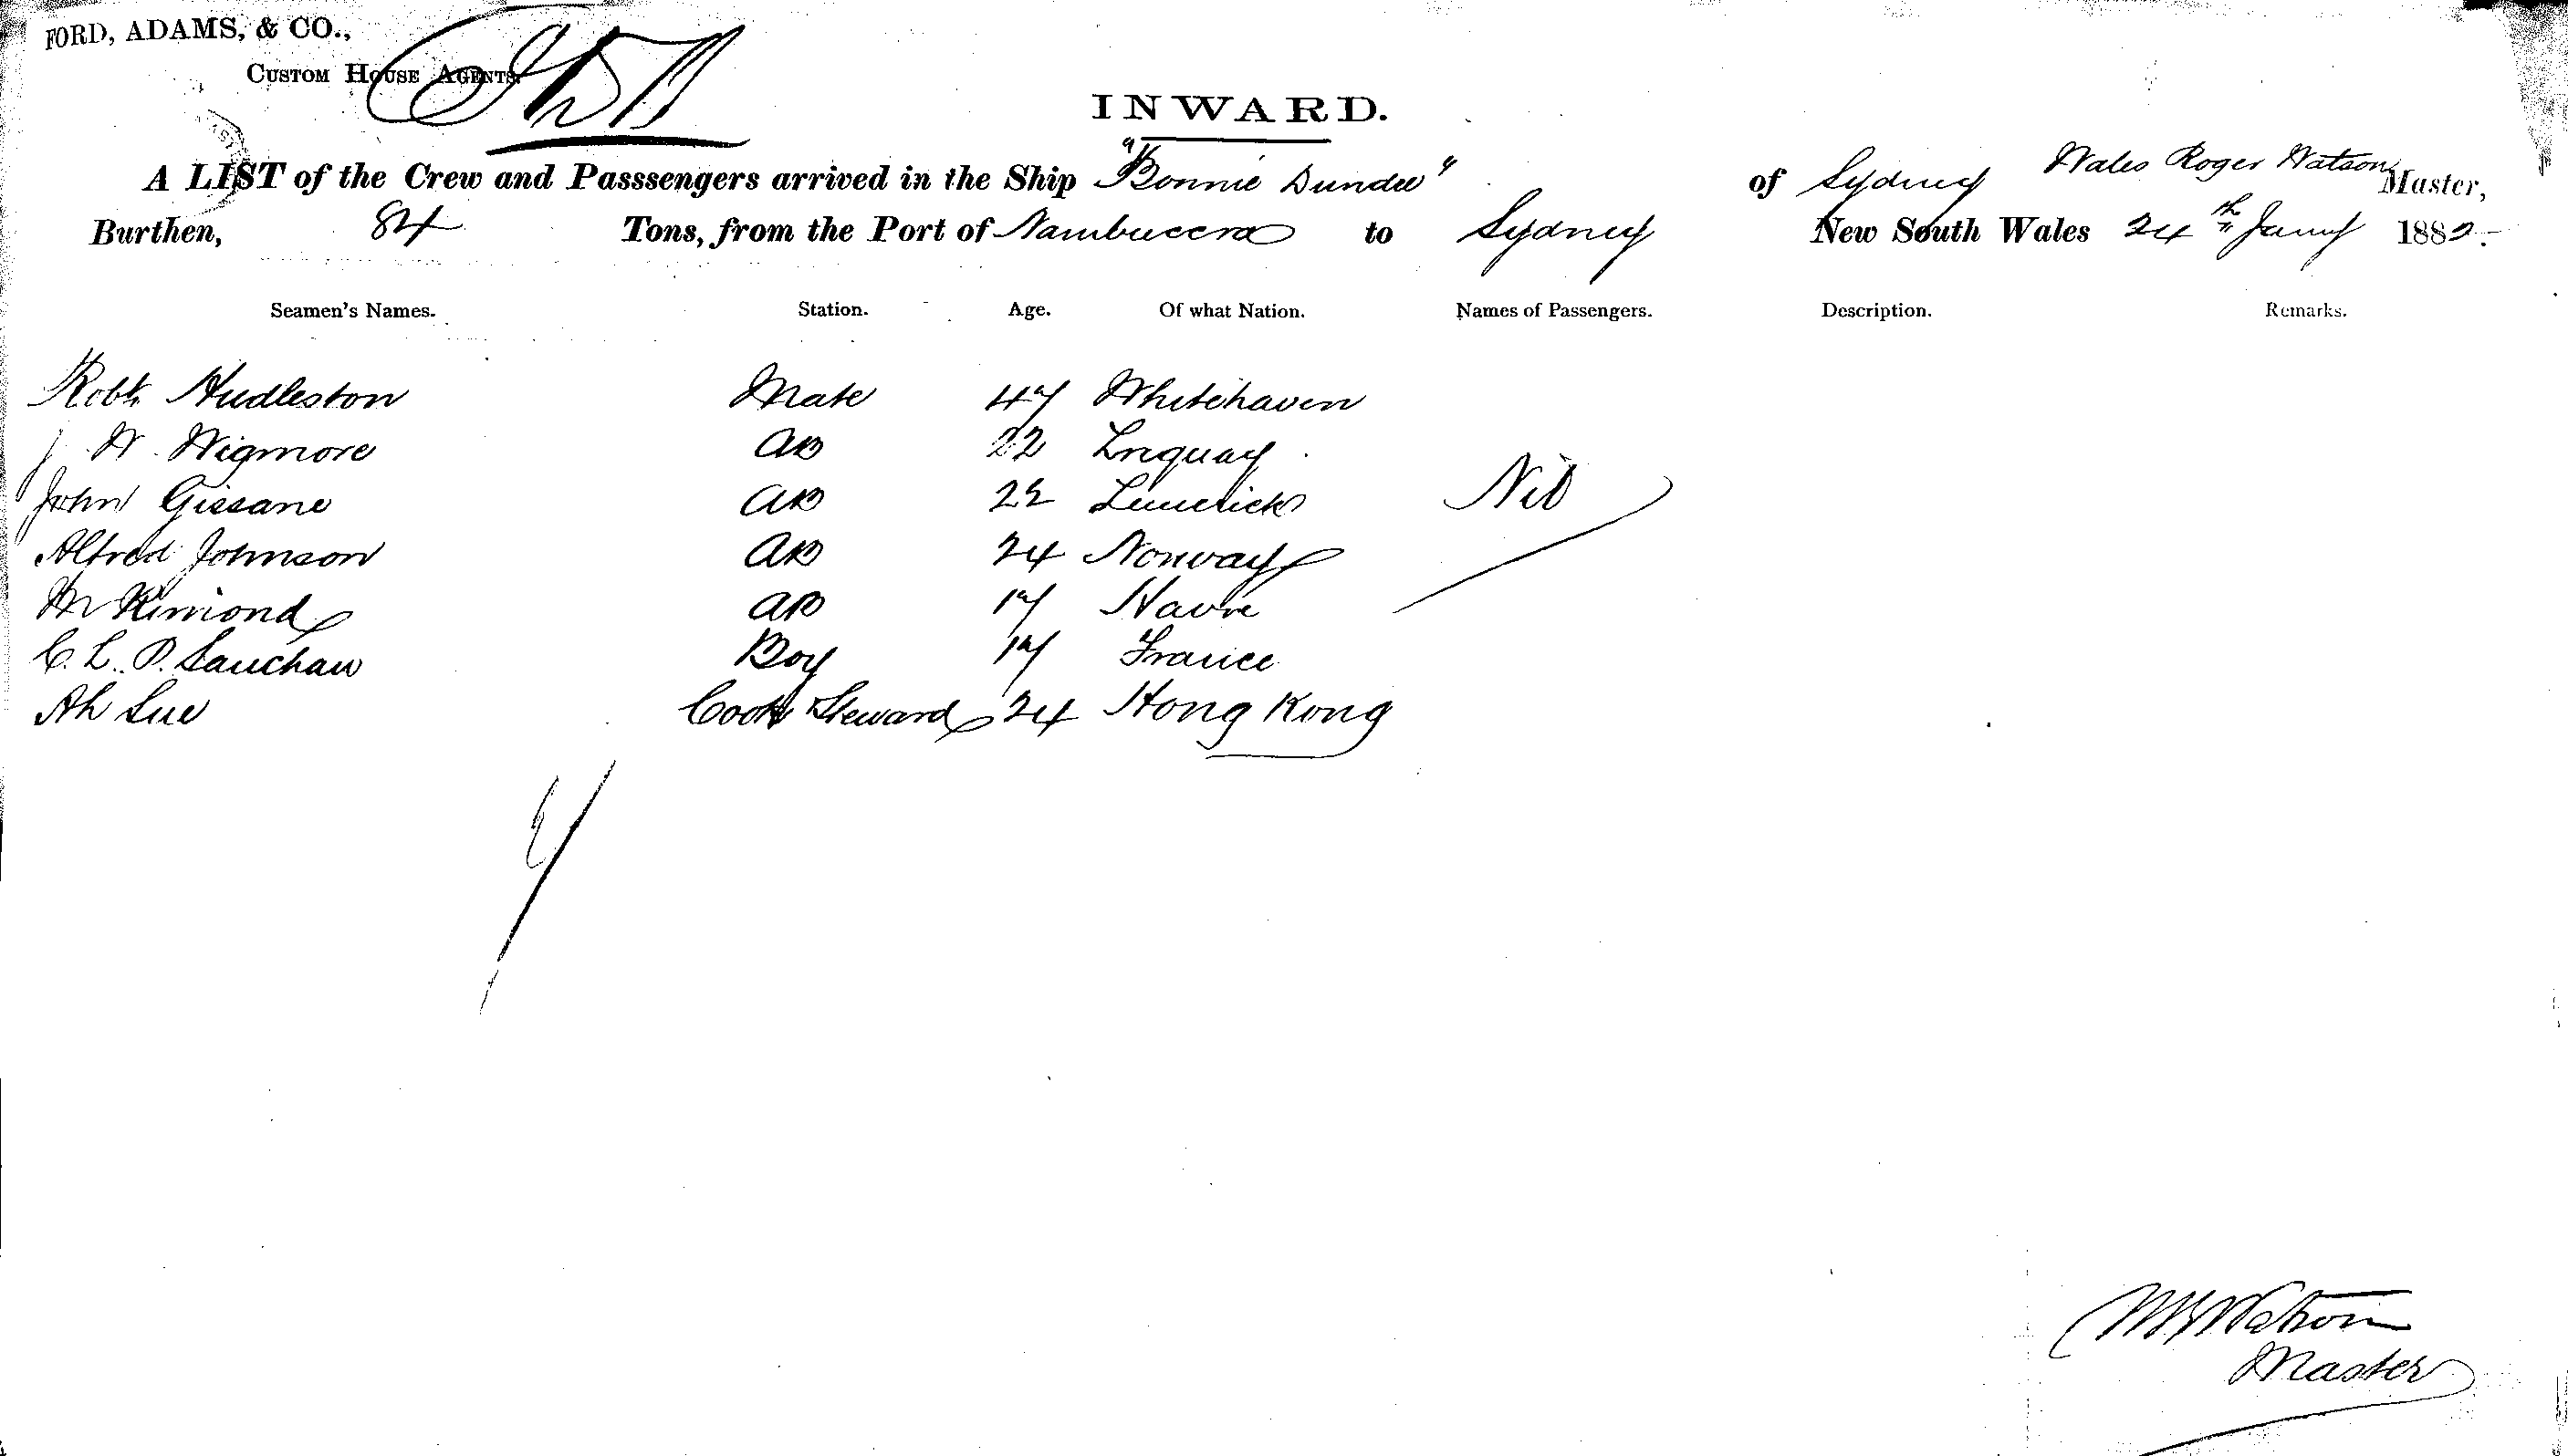 FORD, ADAMS, & CO.,
CUSTOM HOUSE AGENTS.
INWARD.
A LIST of the Crew and Passsengers arrived in the Ship "Bonnie Dundee" of Sydney Wales Roger Watson Master,
Burthen, 84 Tons, from the Port of Nambucera to Sydney New South Wales 24th Jany 1882.
Seamen's Names. Station. Age. Of what Nation. Names of Passengers. Description. Remarks.
Robt Hudleston Mate 47 Whitehaven
W. Wigmore AB 22
John Gissane AB 22 Limerick Nil
Alfred Johnson AB 24 Norway
Wm Rimond AB 17 Havre
C. L. P. Sauchau Boy 17 France
Ah Sue Cook Steward 24 Hong Kong
7
Watson
Master